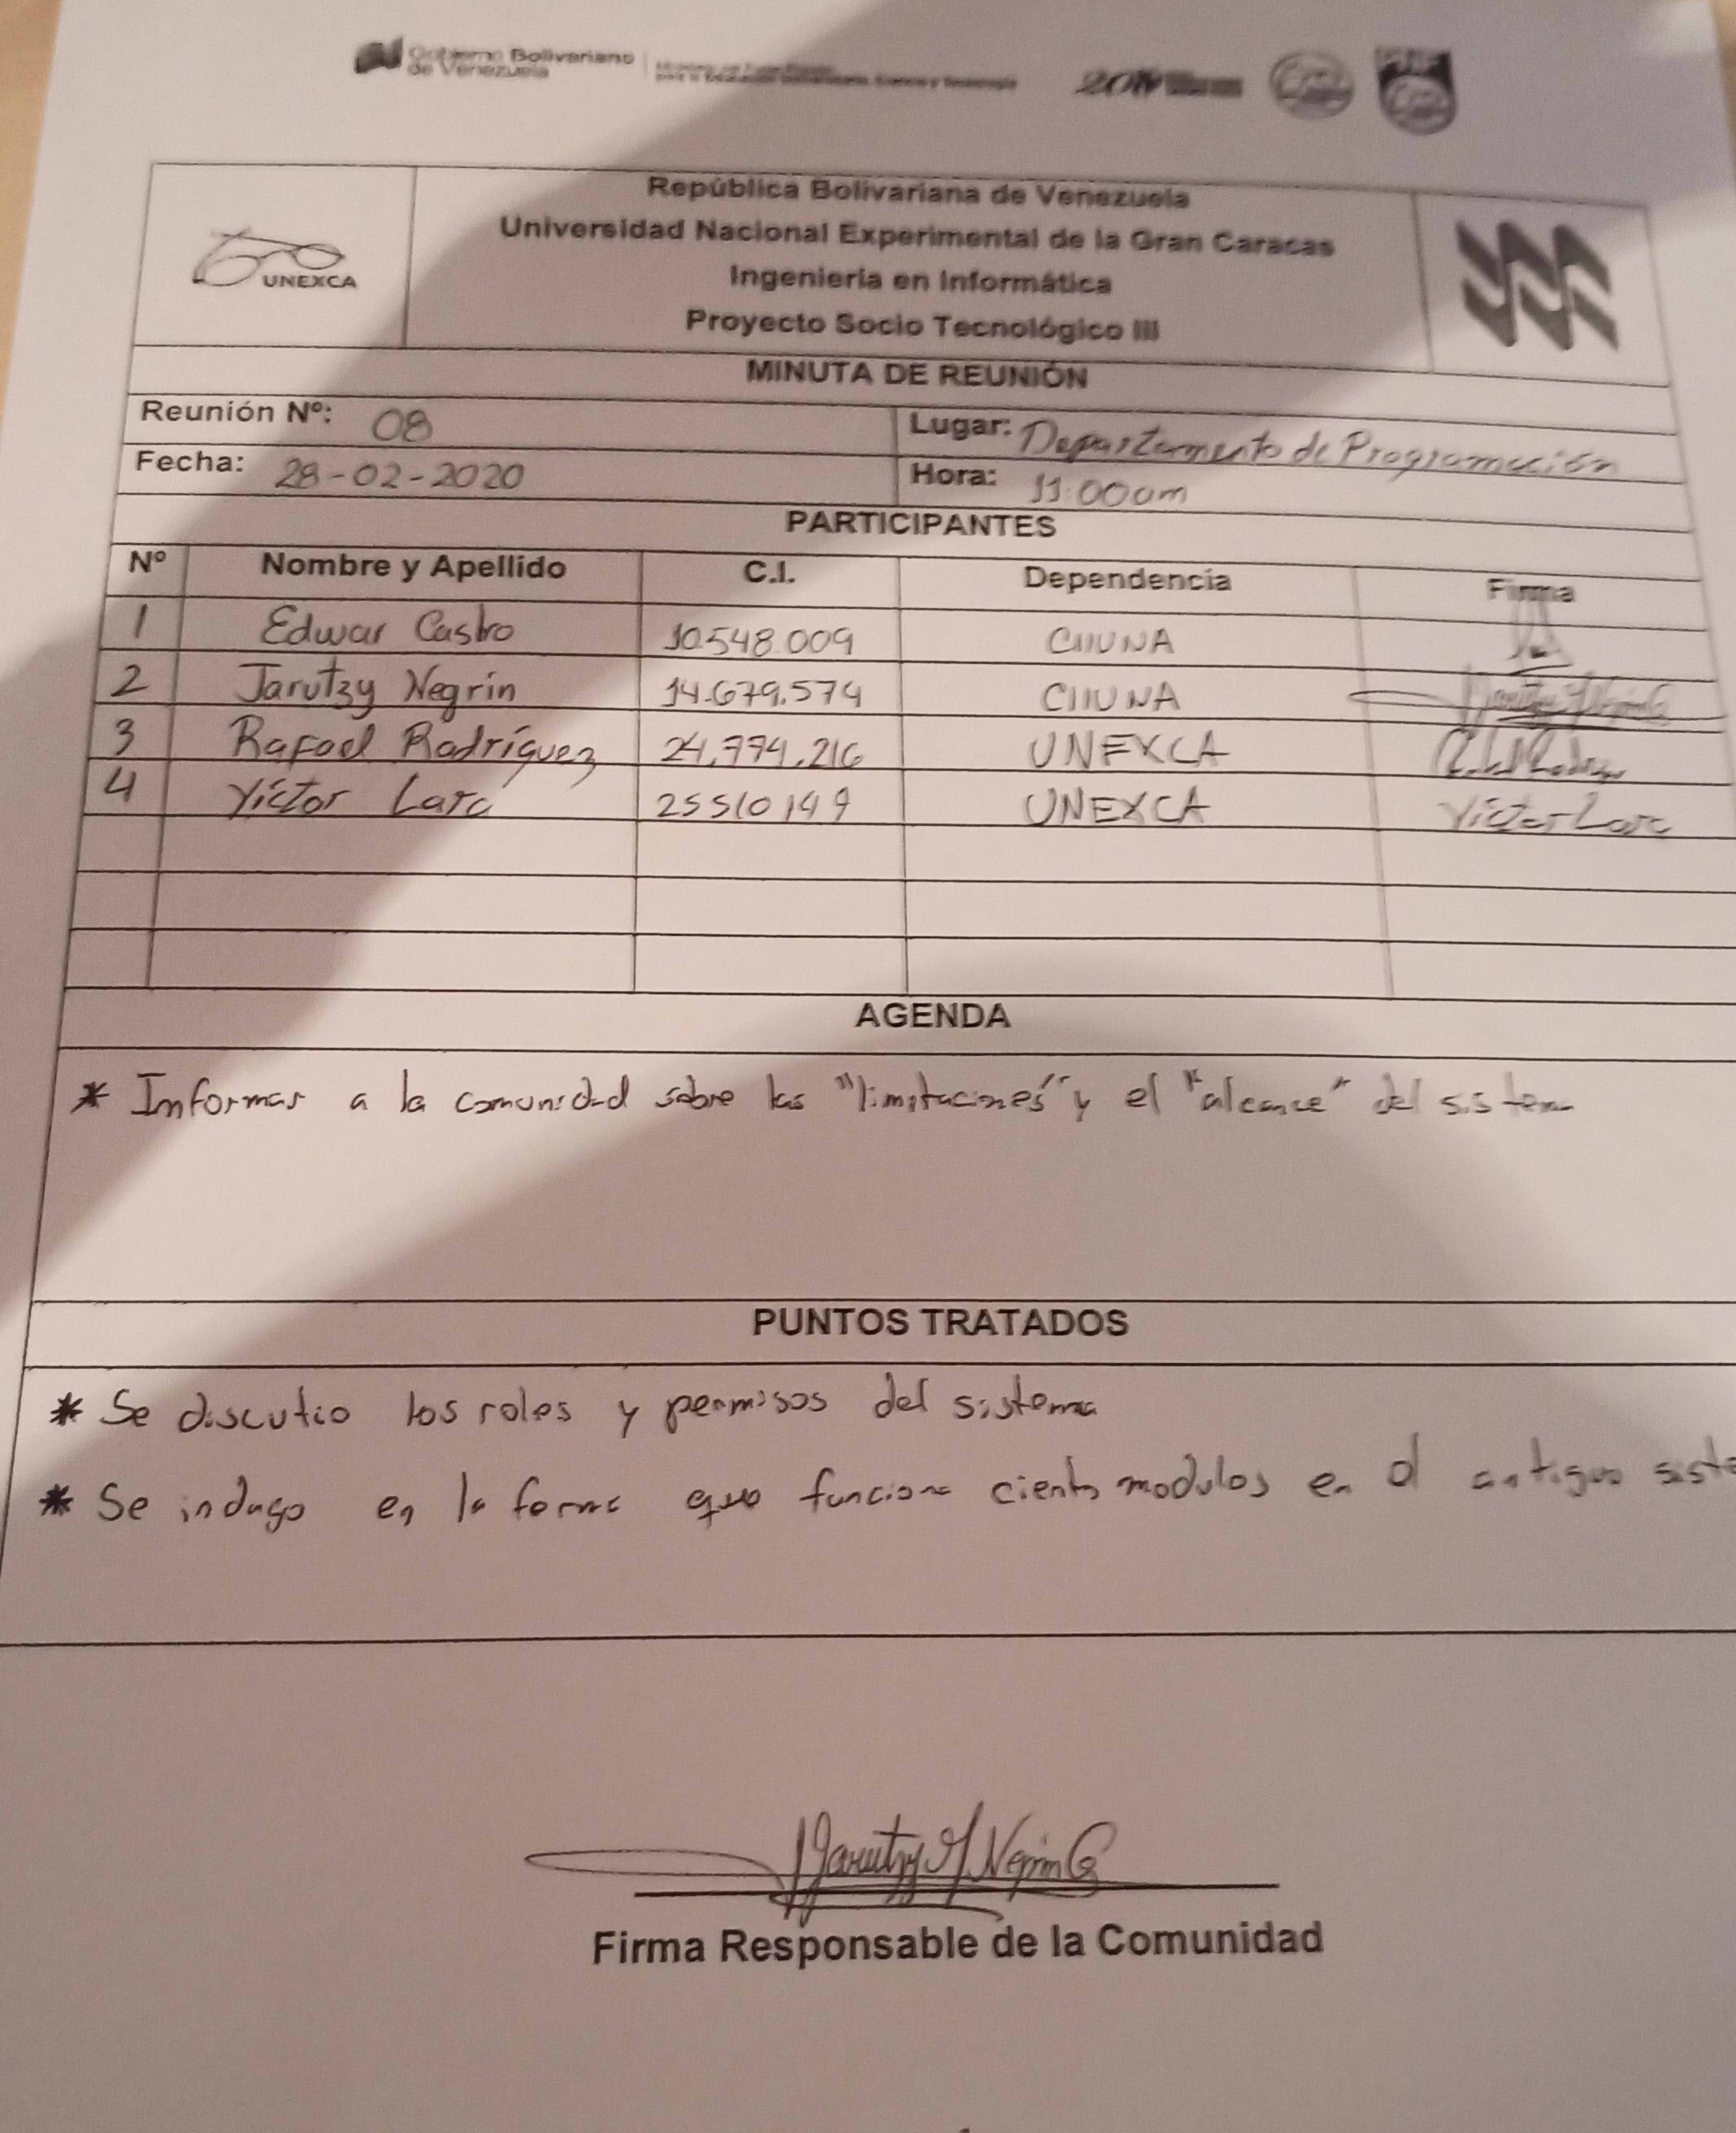 Gobierno Bolivariano
de Venezuela
UNEXCA
República Bolivariana de Venezuela
Universidad Nacional Experimental de la Gran Caracas
Ingeniería en Informática
Proyecto Socio Tecnológico III
MINUTA DE REUNIÓN
Reunión Nº: 08
Lugar: Departamento de Programación
Fecha: 28-02-2020
Hora: 11:00am
PARTICIPANTES
Nº Nombre y Apellido C.I. Dependencia Firma
1 Edwar Castro 10.548.009 CIIUNA
2 Jarutzy Negrin 14.679.574 CIIUNA
3 Rafael Rodríguez 24.774.216 UNEXCA
4 Víctor Lara 25510149 UNEXCA Víctor Lara
AGENDA
* Informar a la comunidad sobre las "limitaciones" y el "alcance" del sistema
PUNTOS TRATADOS
* Se discutio los roles y permisos del sistema
* Se indago en la forma que funciona modulos en el antiguo siste
Firma Responsable de la Comunidad